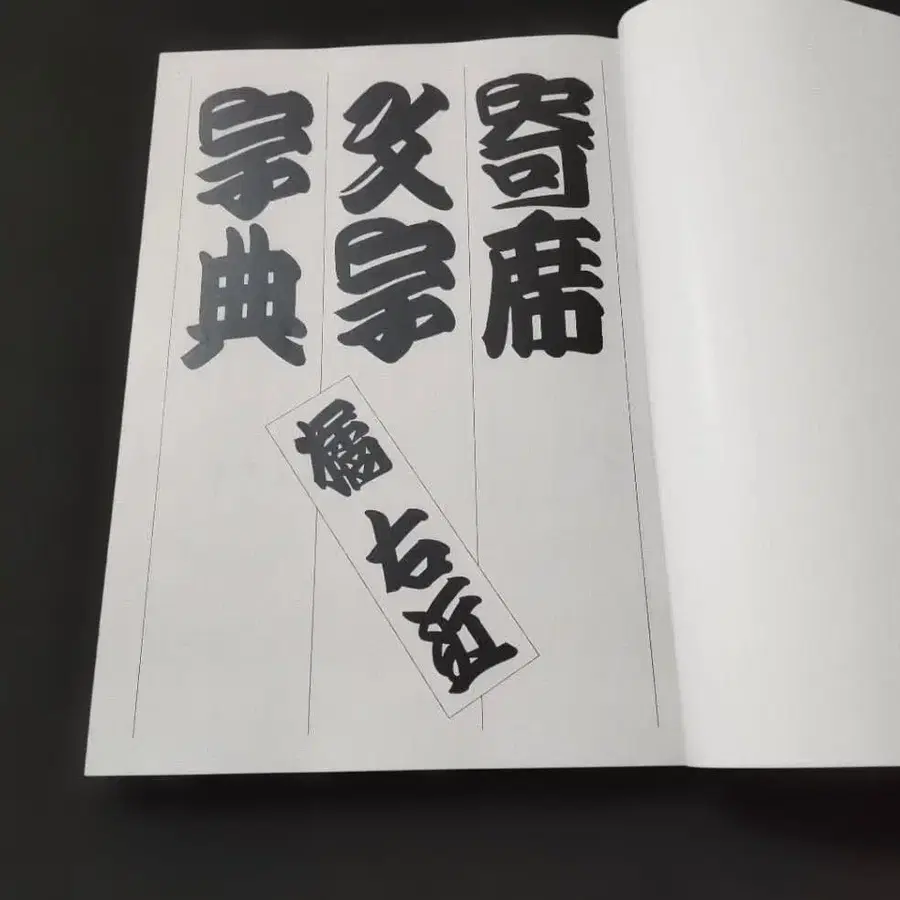 寄席
文字
字典
橘右近